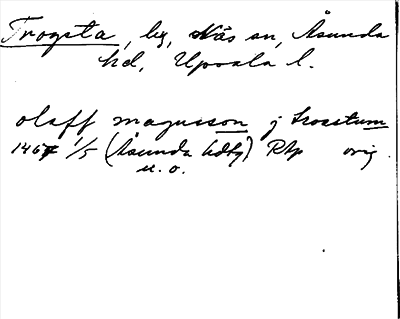 Trogsta, by, Näs sn, Åsunda
hd, Uppsala l.
olaff magnusson j trosstum
1467 1/5 (Åsunda hdtg) RAp orig
u. o.